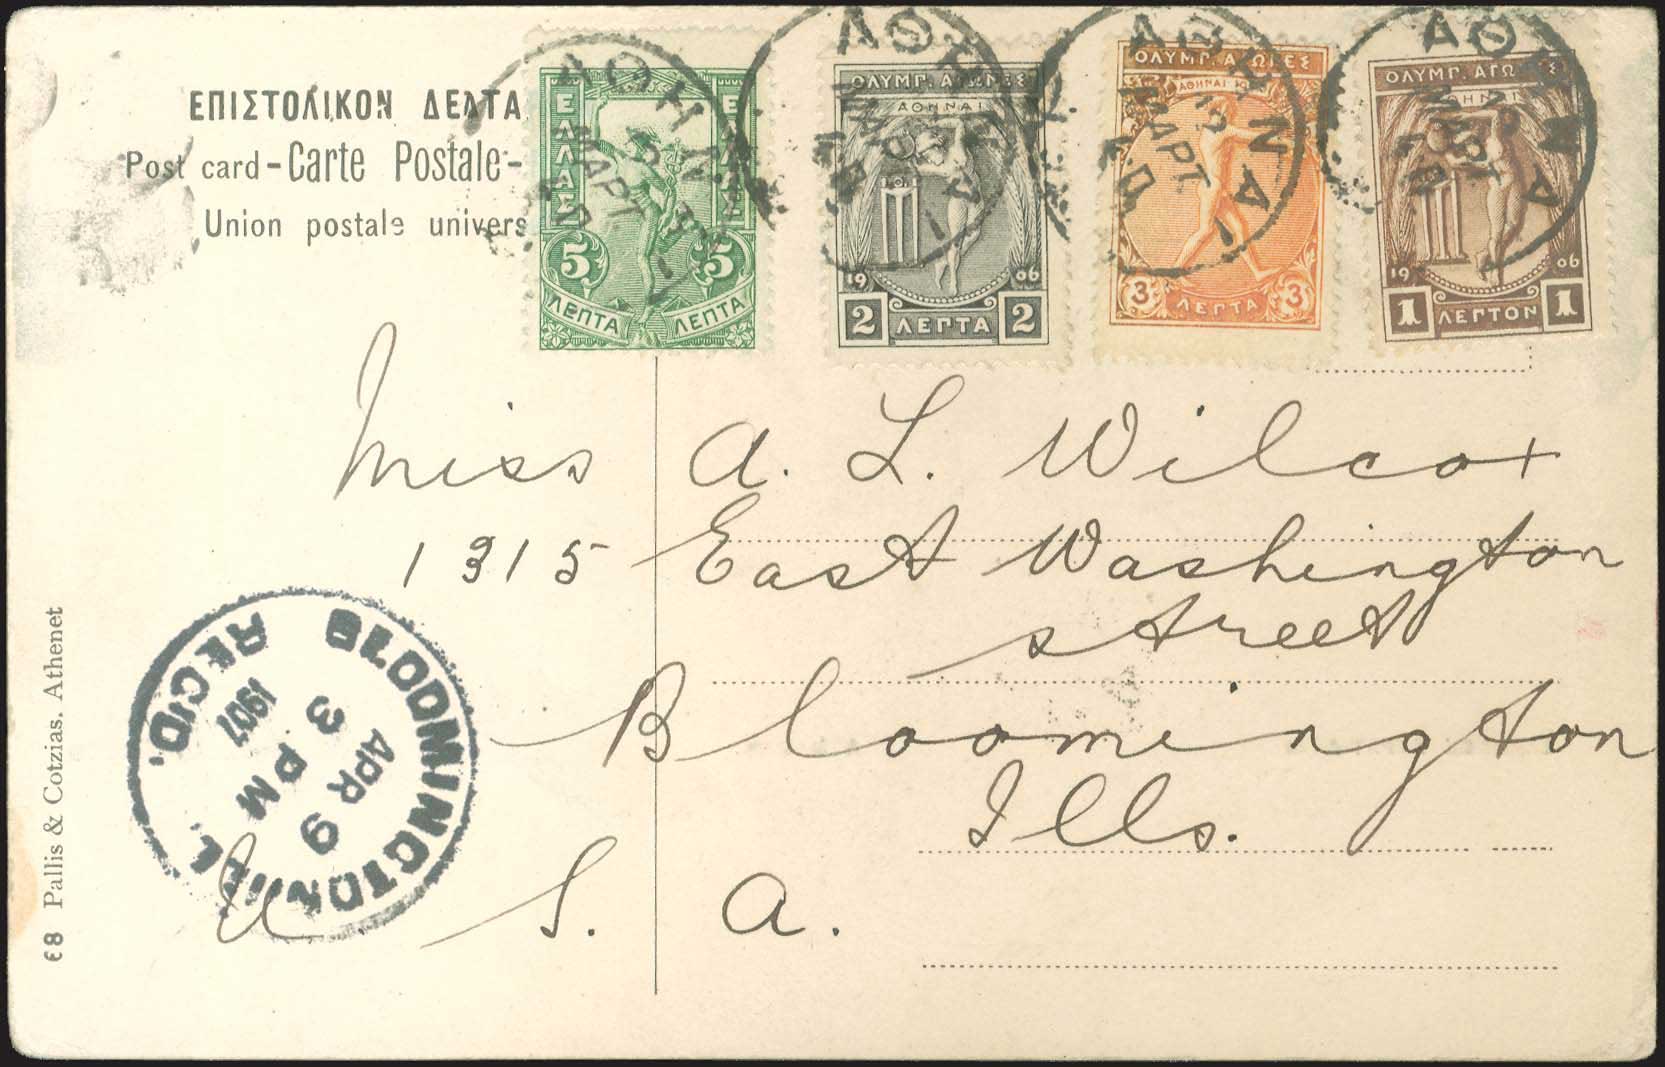 ΕΠΙΣΤΟΛΙΚΟΝ ΔΕΛΤΑ
Post card - Carte Postale -
Union postale univers
ΕΛΛΑΣ ΕΛΛΑΣ
5 5
ΛΕΠΤΑ ΛΕΠΤΑ
ΟΛΥΜΠ. ΑΓΩΝΕΣ
ΑΘΗΝΑΙ
1906
2 ΛΕΠΤΑ 2
ΟΛΥΜΠ. ΑΓΩΝΕΣ
ΑΘΗΝΑΙ
3 ΛΕΠΤΑ 3
ΟΛΥΜΠ. ΑΓΩ Σ
ΑΘΗΝΑΙ
1906
1 ΛΕΠΤΟΝ 1
ΑΘΗΝΑΙ
ΜΑΡΤ
ΑΘΗΝΑ
ΑΘΗΝΑ
ΜΑΡΤ
ΑΘΗΝΑ
ΜΑΡΤ
Miss A. L. Wilcox
1315 East Washington
street
Bloomington
Ills.
U S. A.
BLOOMINGTON, ILL.
REC'D.
APR 9
3 PM
1907
68 Pallis & Cotzias. Athenet